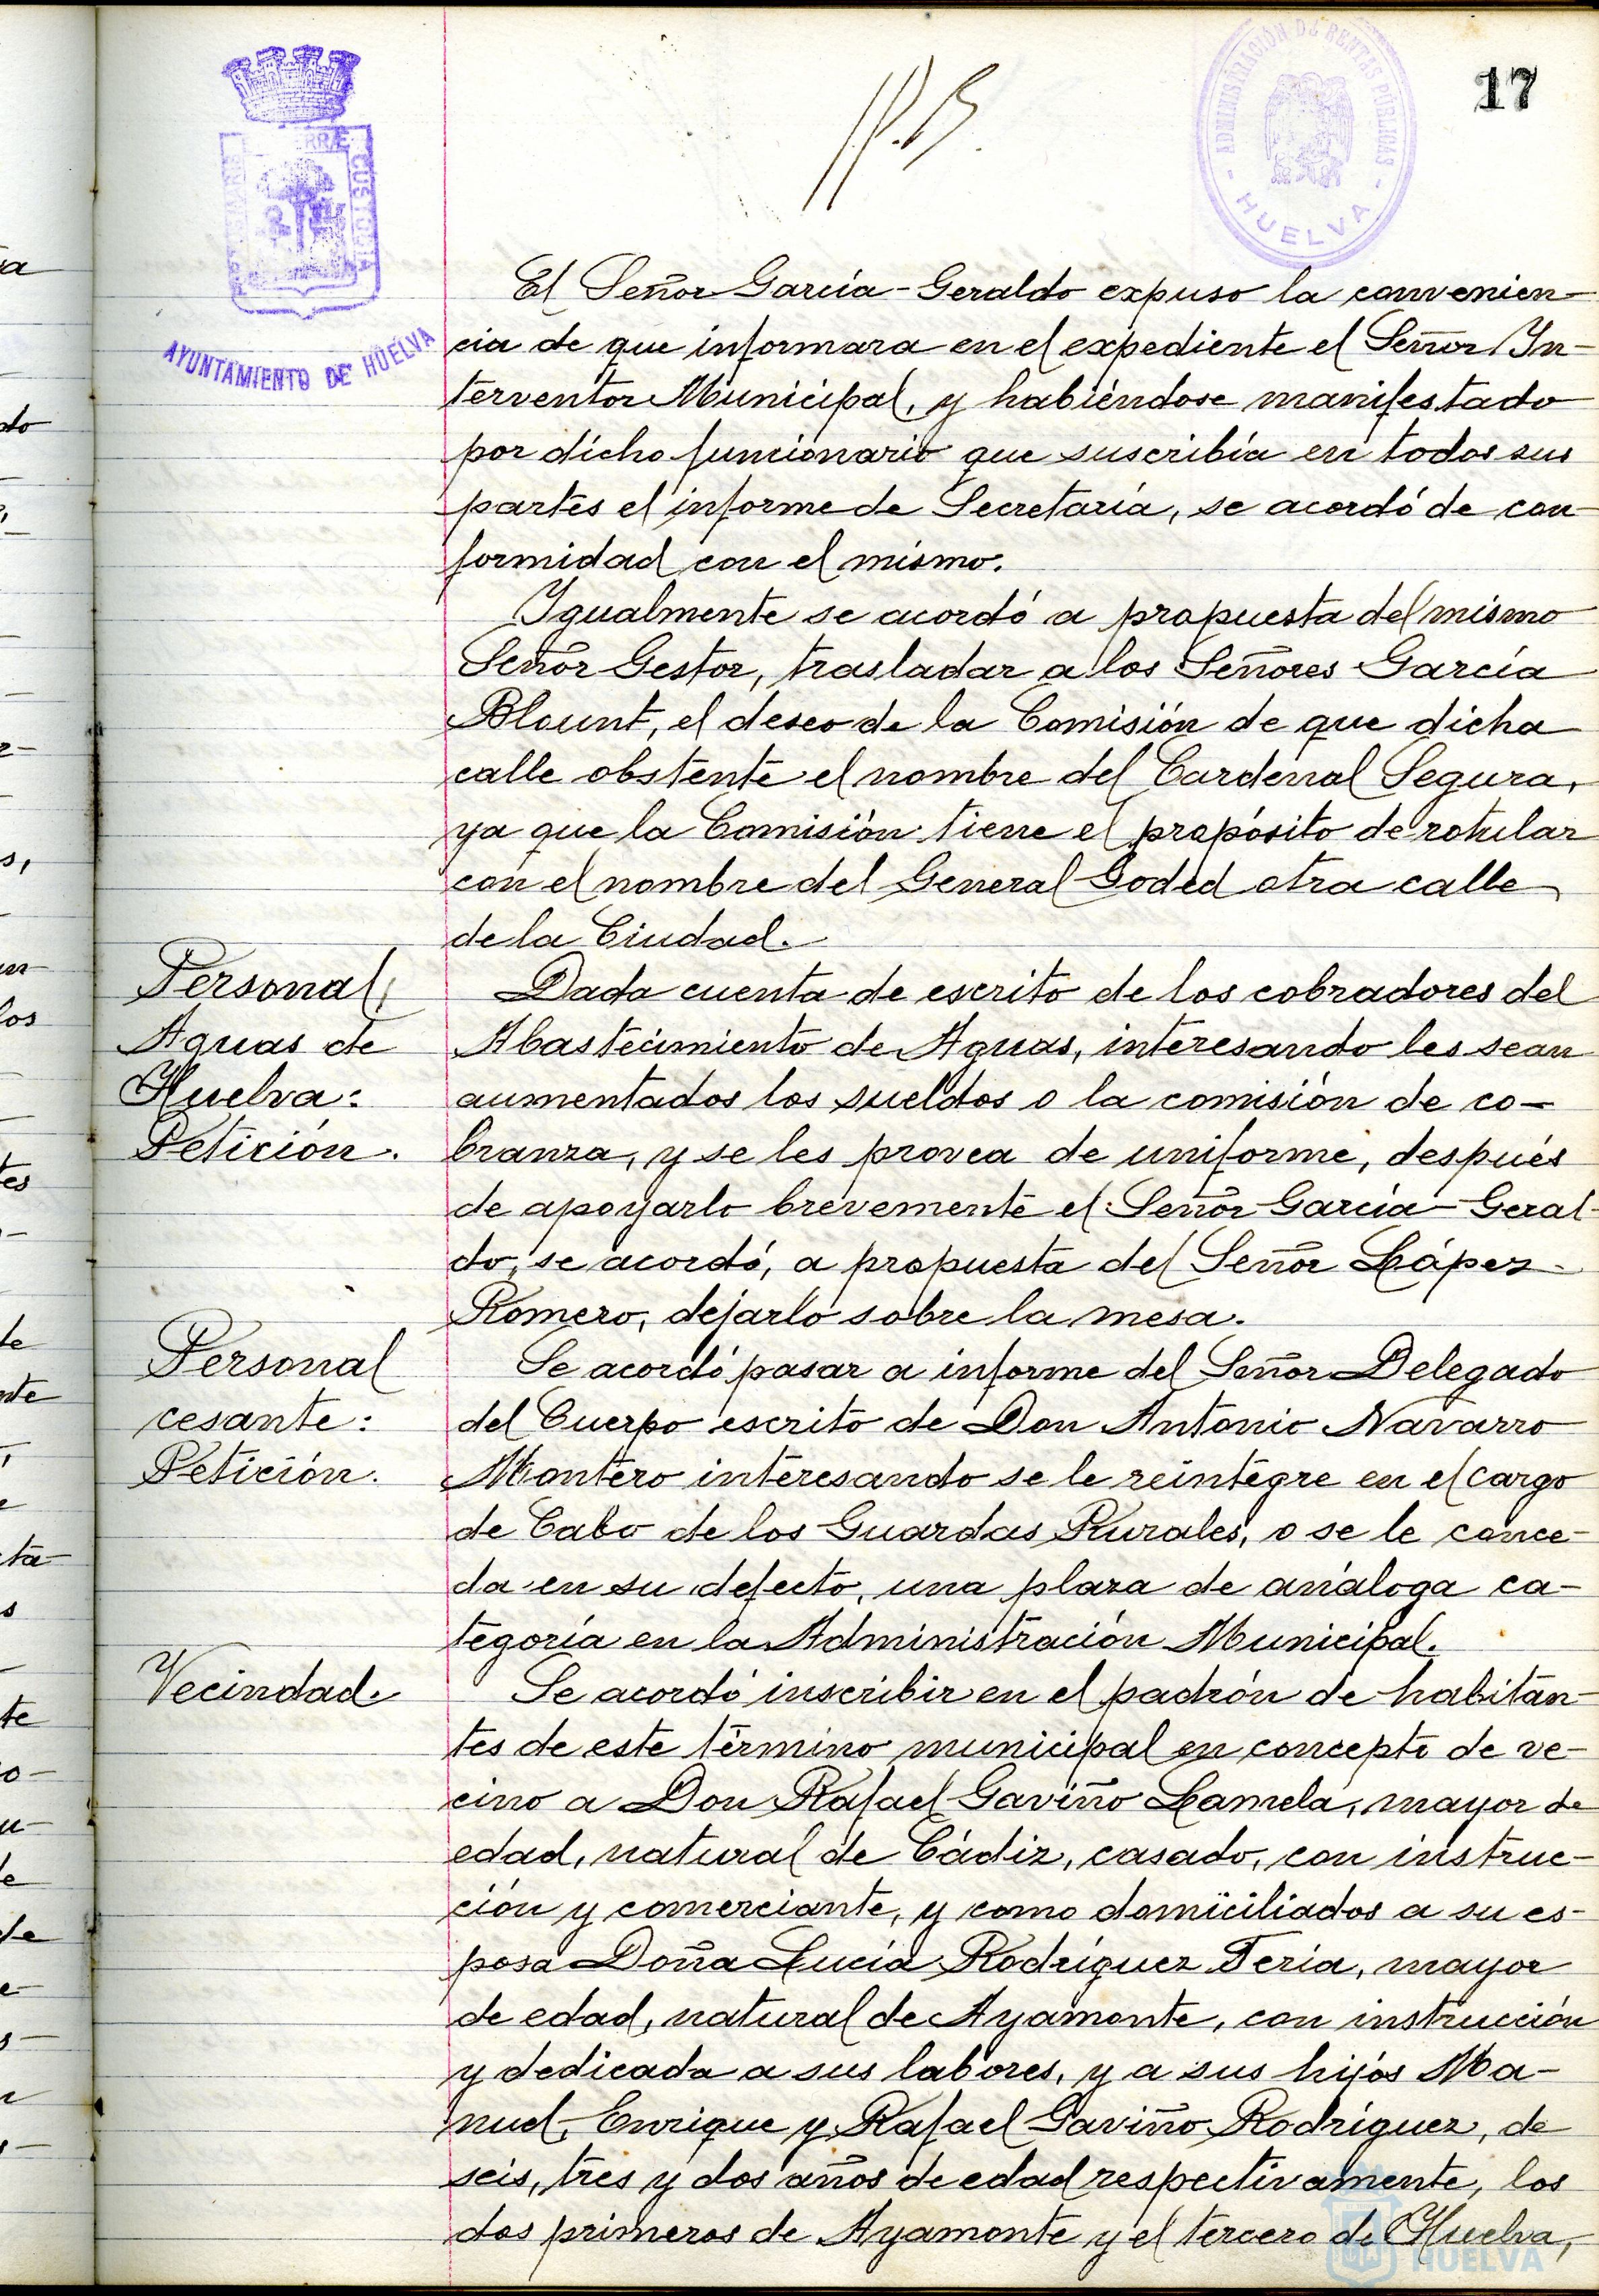 17
ADMINISTRACIÓN DE RENTAS PUBLICAS
- HUELVA -
CUSTODIA
AYUNTAMIENTO DE HUELVA
El Señor García-Geraldo expuso la convenien-
cia de que informara en el expediente el Señor In-
terventor Municipal, y habiéndose manifestado
por dicho funcionario que suscribía en todos sus
partes el informe de Secretaría, se acordó de con-
formidad con el mismo.
Igualmente se acordó a propuesta del mismo
Señor Gestor, trasladar a los Señores García
Blount, el deseo de la Comisión de que dicha
calle obstente el nombre del Cardenal Segura,
ya que la Comisión tiene el propósito de rotular
con el nombre del General Goded otra calle
de la Ciudad.
Personal,
Aguas de
Huelva:
Petición.
Dada cuenta de escrito de los cobradores del
Abastecimiento de Aguas, interesando les sean
aumentados los sueldos o la comisión de co-
branza, y se les provea de uniforme, después
de apoyarlo brevemente el Señor García-Geral-
do, se acordó, a propuesta del Señor López
Romero, dejarlo sobre la mesa.
Personal
cesante:
Petición.
Se acordó pasar a informe del Señor Delegado
del Cuerpo escrito de Don Antonio Navarro
Montero interesando se le reintegre en el cargo
de Cabo de los Guardas Rurales, o se le conce-
da en su defecto, una plaza de análoga ca-
tegoría en la Administración Municipal.
Vecindad.
Se acordó inscribir en el padrón de habitan-
tes de este término municipal en concepto de ve-
cino a Don Rafael Gaviño Lamela, mayor de
edad, natural de Cádiz, casado, con instruc-
ción y comerciante, y como domiciliados a su es-
posa Doña Lucía Rodríguez Feria, mayor
de edad, natural de Ayamonte, con instrucción
y dedicada a sus labores, y a sus hijos Ma-
nuel, Enrique y Rafael Gaviño Rodríguez, de
seis, tres y dos años de edad respectivamente, los
dos primeros de Ayamonte y el tercero de Huelva,
HUELVA